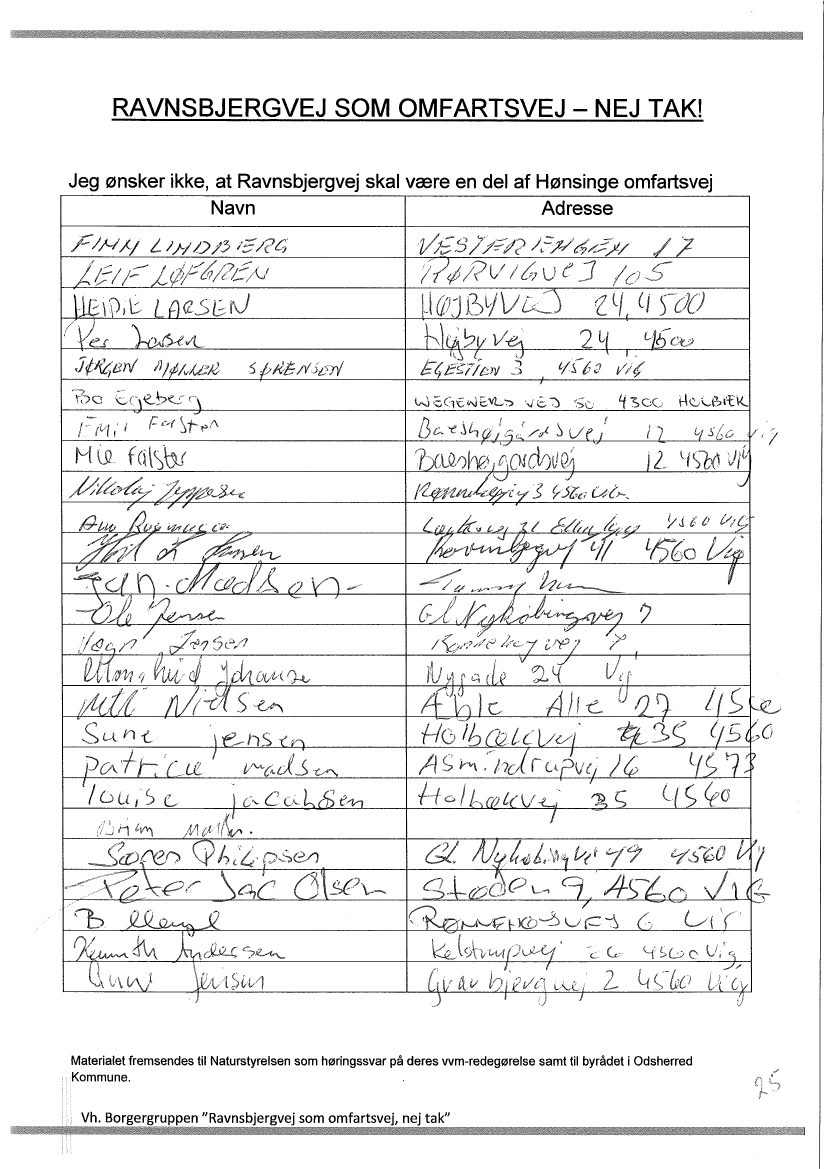 RAVNSBJERGVEJ SOM OMFARTSVEJ – NEJ TAK!
Jeg ønsker ikke, at Ravnsbjergvej skal være en del af Hønsinge omfartsvej
Navn Adresse
FINN LINDBJERG VESTERIENGEN 17
LEIF LØFGREN RØRVIGVEJ 105
HEIDIE LARSEN HØJBYVEJ 24, 4500
Per Larsen Højbyvej 24, 4500
JØRGEN MØLLER SØRENSEN EGESTIEN 3, 4560 VIG
Bo Egeberg WEGENERS VEJ 50 4300 HOLBÆK
Emil Falster Baeshøjgårdsvej 12 4560 Vig
Mie Falster Baeshøjgardsvej 12 4560 Vig
Nikolaj Jeppesen 3 4560 Vig.
4560 VIG
41 4560 Vig
Jan Madsen
Ole Jensen Gl Nykøbingvej 7
Vagn Jensen
Nygade 24 Vig
Nielsen Æble Alle 27
Sune jensen Holbækvej 35 4560
patricie madsen Asmindrupvej 16 4573
louise jacobsen Holbækvej 35 4560
Brian
Søren Philipsen Gl. Nykøbingvej 49 4560 Vig
Peter Jac Olsen Støden 9, 4560 VIG
B 6 VIG
Kenneth Andersen Kelstrupvej 26 4560 Vig
Jensen Gravbjergvej 2 4560 Vig
Materialet fremsendes til Naturstyrelsen som høringssvar på deres vvm-redegørelse samt til byrådet i Odsherred
Kommune.
25
Vh. Borgergruppen "Ravnsbjergvej som omfartsvej, nej tak"